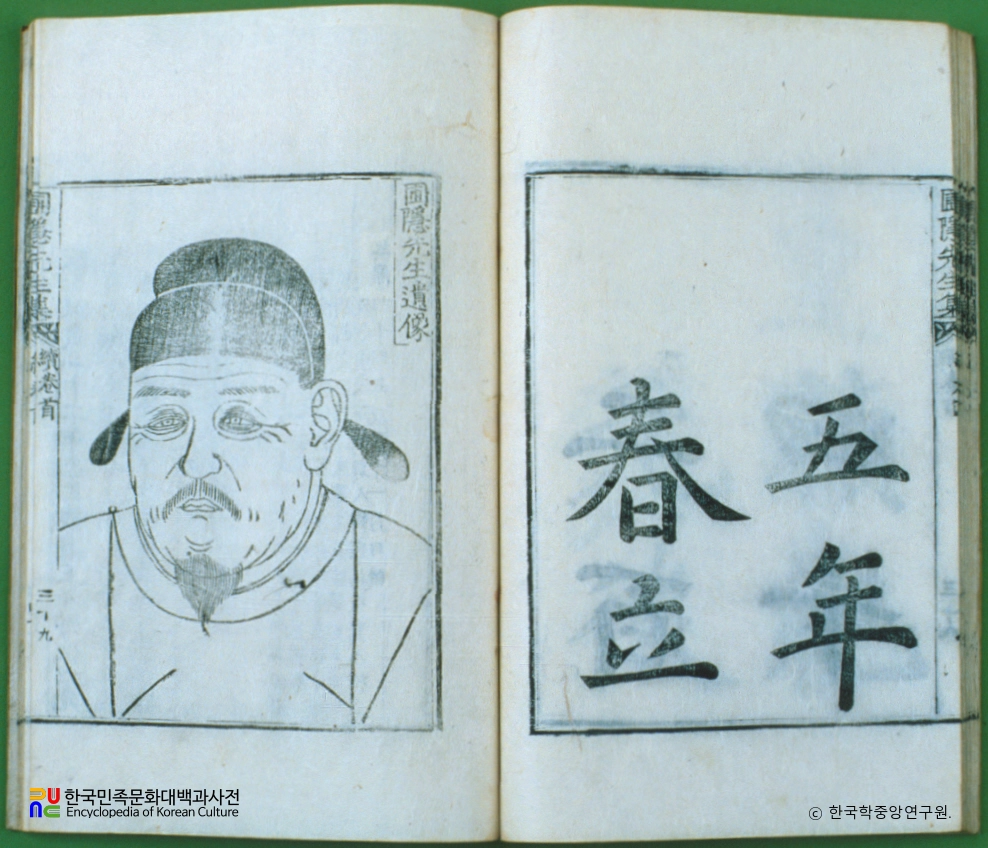 五年
春立
圃隱先生遺像
圃隱先生集
續卷首
三十九
圃隱先生集
한국민족문화대백과사전
Encyclopedia of Korean Culture
ⓒ 한국학중앙연구원.